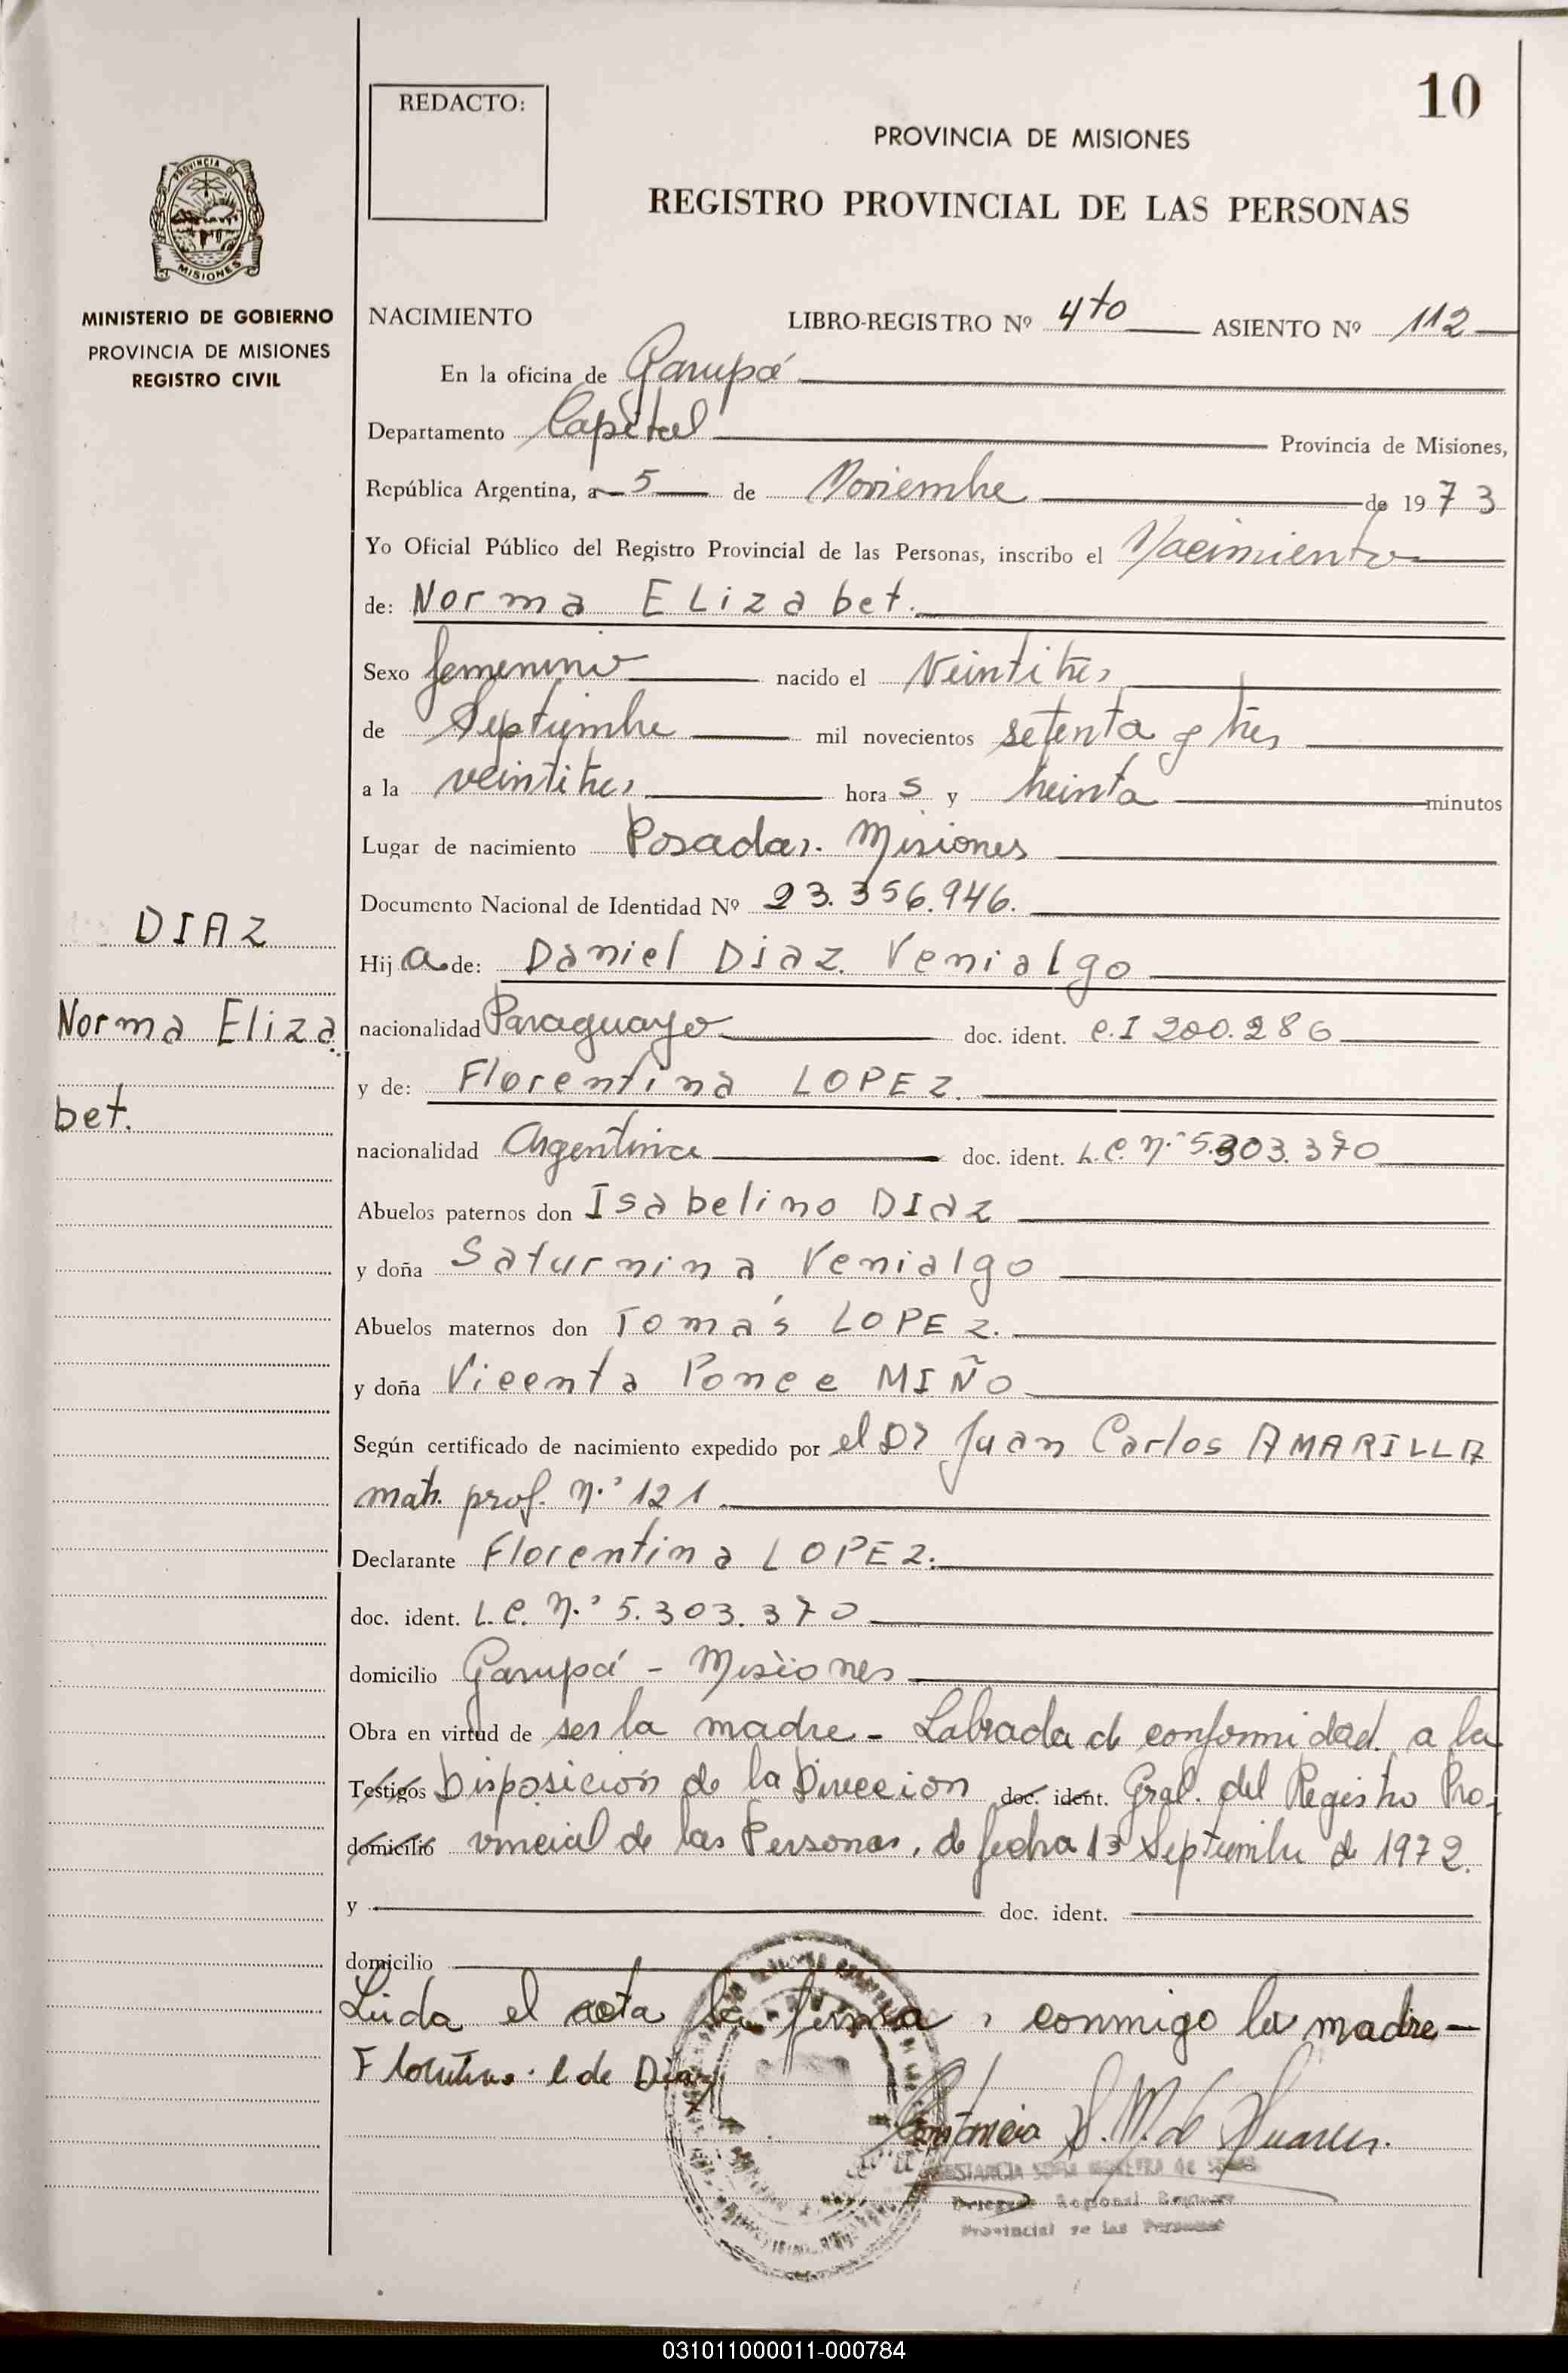 10
REDACTO:
PROVINCIA DE MISIONES
REGISTRO PROVINCIAL DE LAS PERSONAS
PROVINCIA DE
MISIONES
MINISTERIO DE GOBIERNO
PROVINCIA DE MISIONES
REGISTRO CIVIL
NACIMIENTO LIBRO-REGISTRO Nº 4to ASIENTO Nº 112
En la oficina de Garupá
Departamento Capital Provincia de Misiones,
República Argentina, a 5 de Noviembre de 1973
Yo Oficial Público del Registro Provincial de las Personas, inscribo el Nacimiento
de: Norma ELizabet.
Sexo femenino nacido el Veintitres
de Septiembre mil novecientos setenta y tres
a la veintitres horas y treinta minutos
Lugar de nacimiento Posadas. Misiones
Documento Nacional de Identidad Nº 23.356.946.
DIAZ
Norma Eliza
bet.
Hija de: Daniel Diaz Venialgo
nacionalidad Paraguayo doc. ident. C.I 200.286
y de: Florentina LOPEZ.
nacionalidad Argentina doc. ident. L.C. n.º 5.303.370
Abuelos paternos don Isabelino DIaz
y doña Saturnina Venialgo
Abuelos maternos don Tomás LOPEZ.
y doña Vicenta Ponce MIÑO
Según certificado de nacimiento expedido por el Dr Juan Carlos AMARILLA
mat. prof. n.º 121.
Declarante Florentina LOPEZ.
doc. ident. L.C. n.º 5.303.370
domicilio Garupá - Misiones
Obra en virtud de ser la madre - Labrada de conformidad a la
Testigos Disposición de la Direccion doc. ident. Gral. del Registro Pro-
domicilio vincial de las Personas, de fecha 13 Septiembre de 1972.
y doc. ident.
domicilio
Leida el acta la firma, conmigo la madre -
Florentina L de Diaz
Constancia S. M. de Suarez.
CONSTANCIA SOFIA MOREIRA de
Delegada Regional Registro
Provincial de las Personas
031011000011-000784